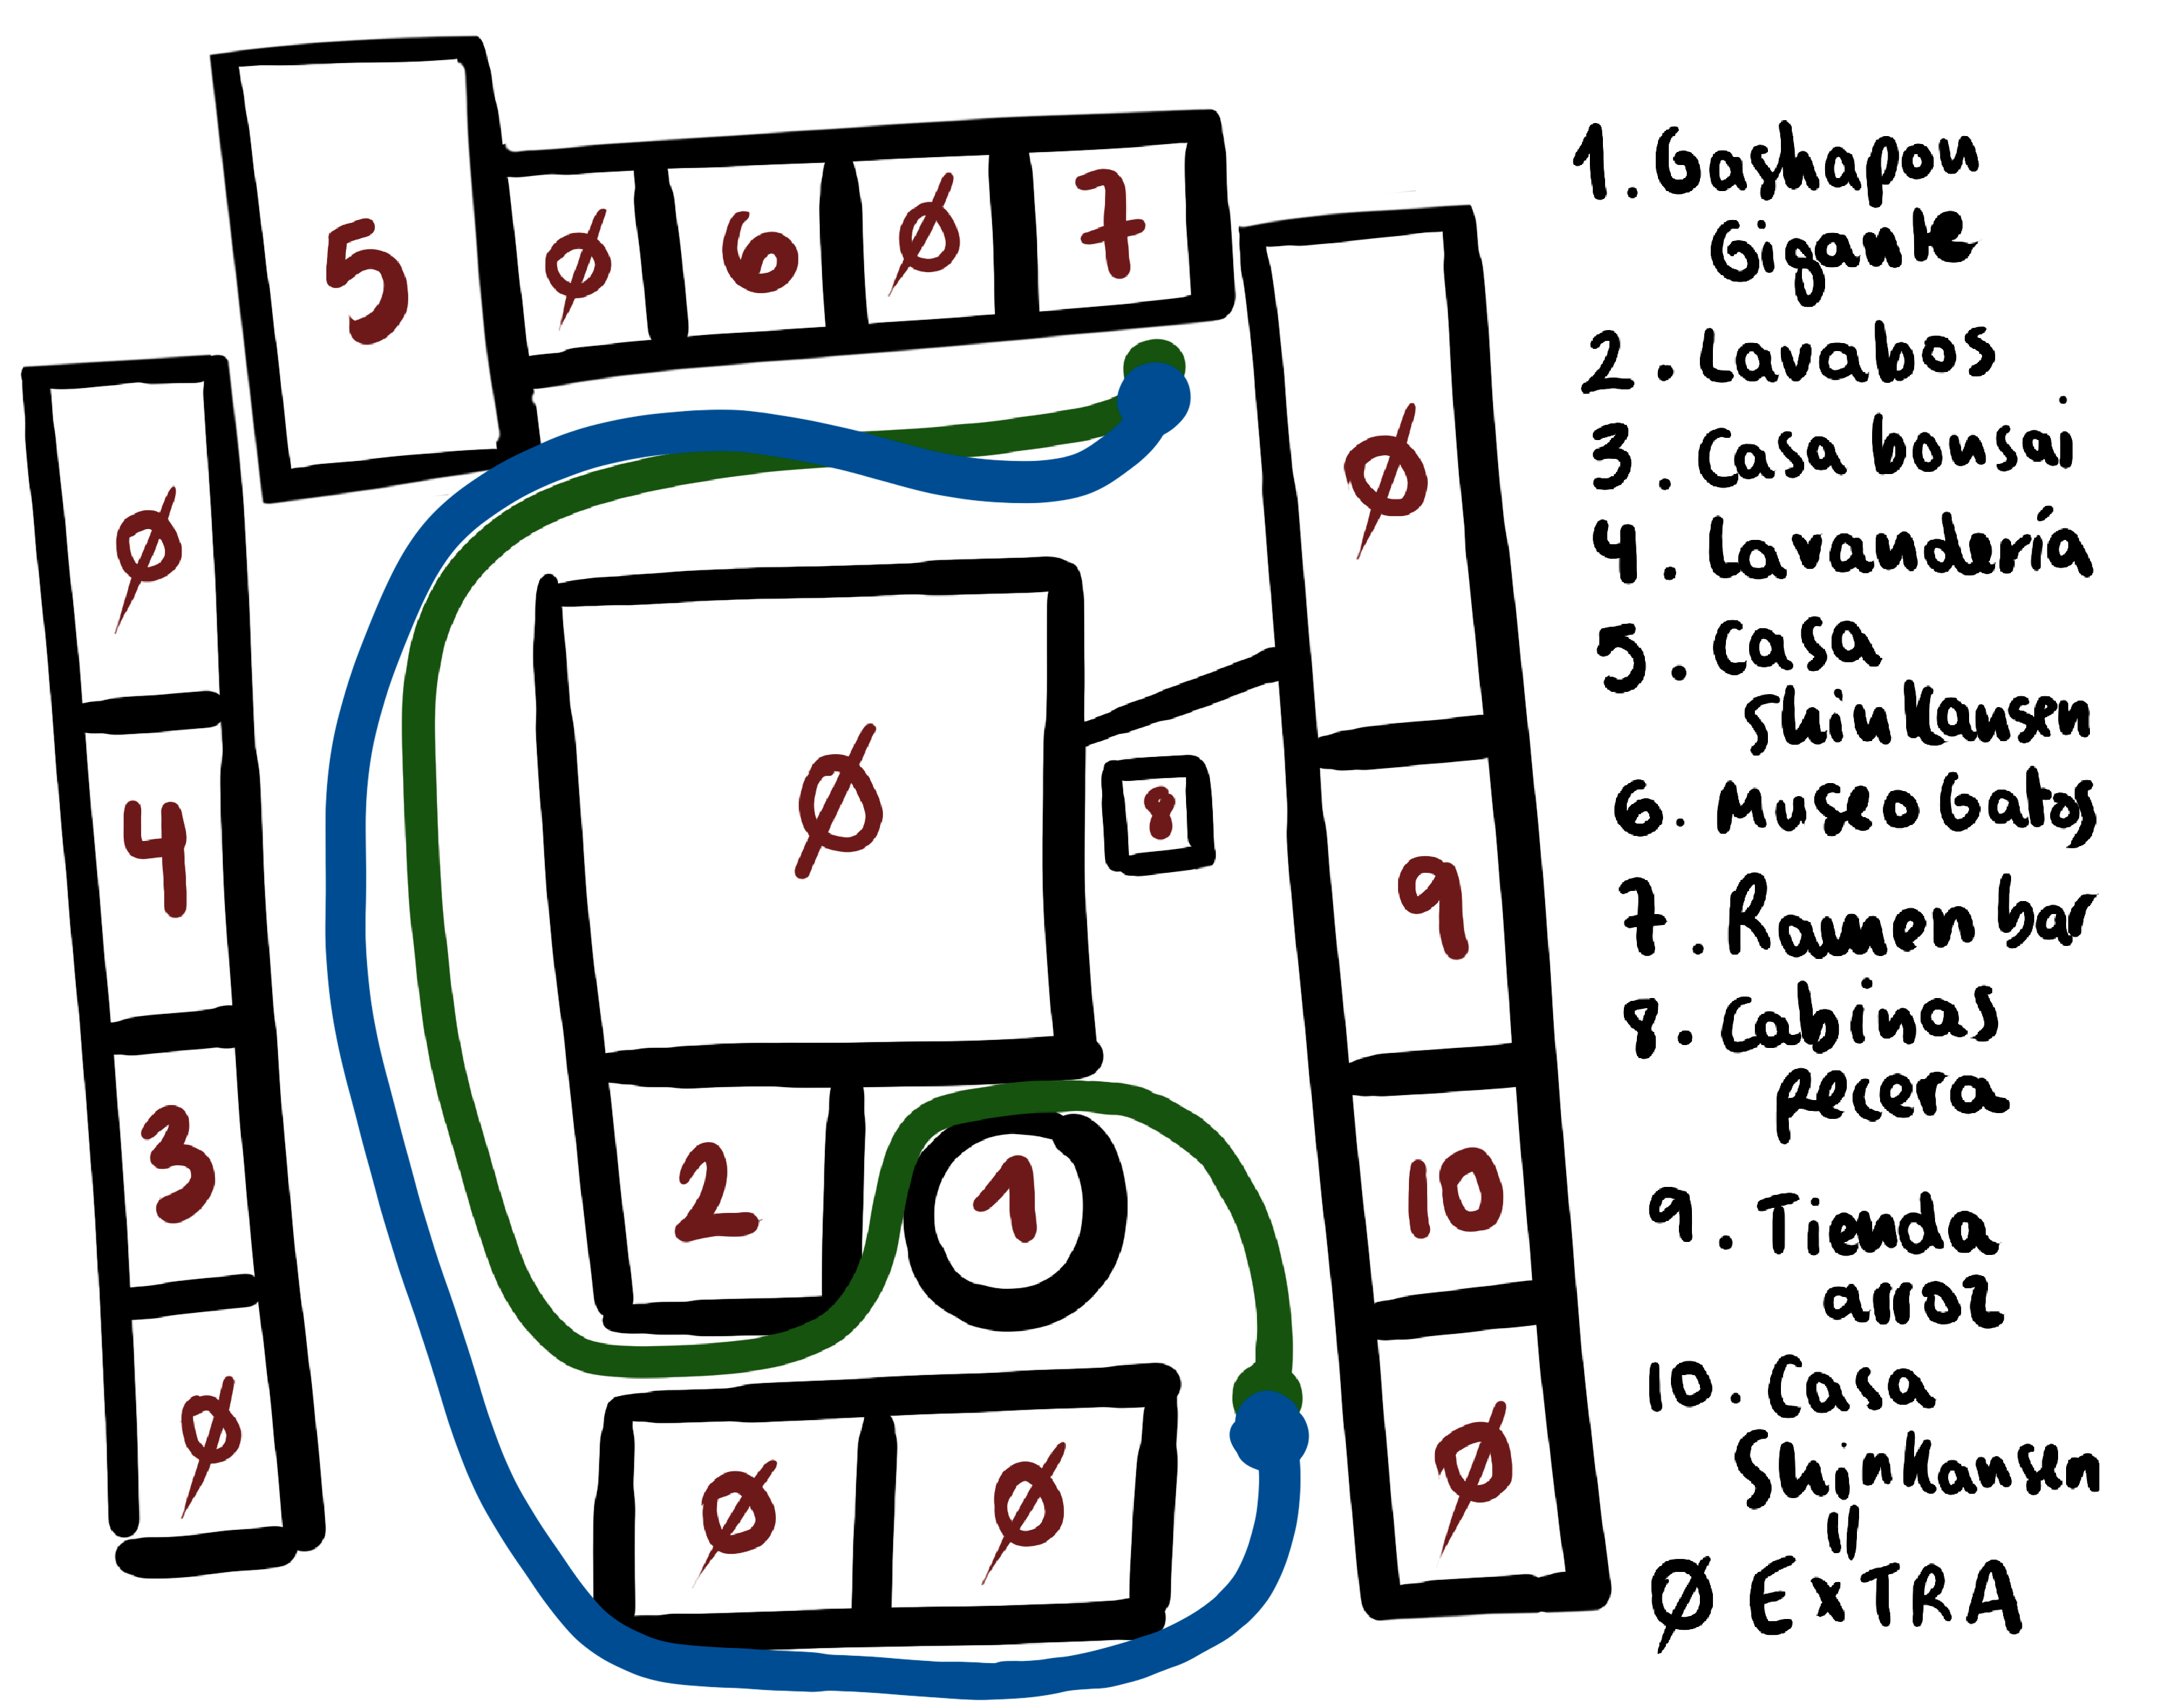 5
Ø
6
Ø
7
Ø
Ø
Ø
8
4
9
3
2
1
10
Ø
Ø
Ø
Ø
1. Gashapon
Gigante
2. Lavabos
3. Casa bonsai
4. Lavandería
5. Casa
Shinkansen
6. Museo Gatos
7. Ramen bar
8. Cabinas
pecera
9. Tienda
arroz
10. Casa
Shinkansen
II
Ø EXTRA